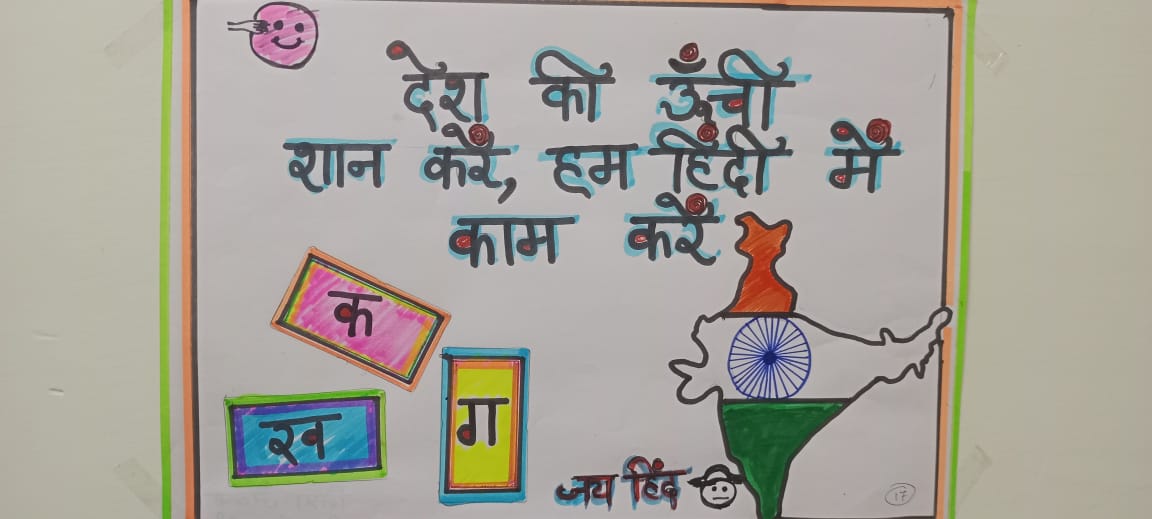 देश की ऊँची
शान करें, हम हिंदी में
काम करें
क
ख
ग
जय हिंद
17